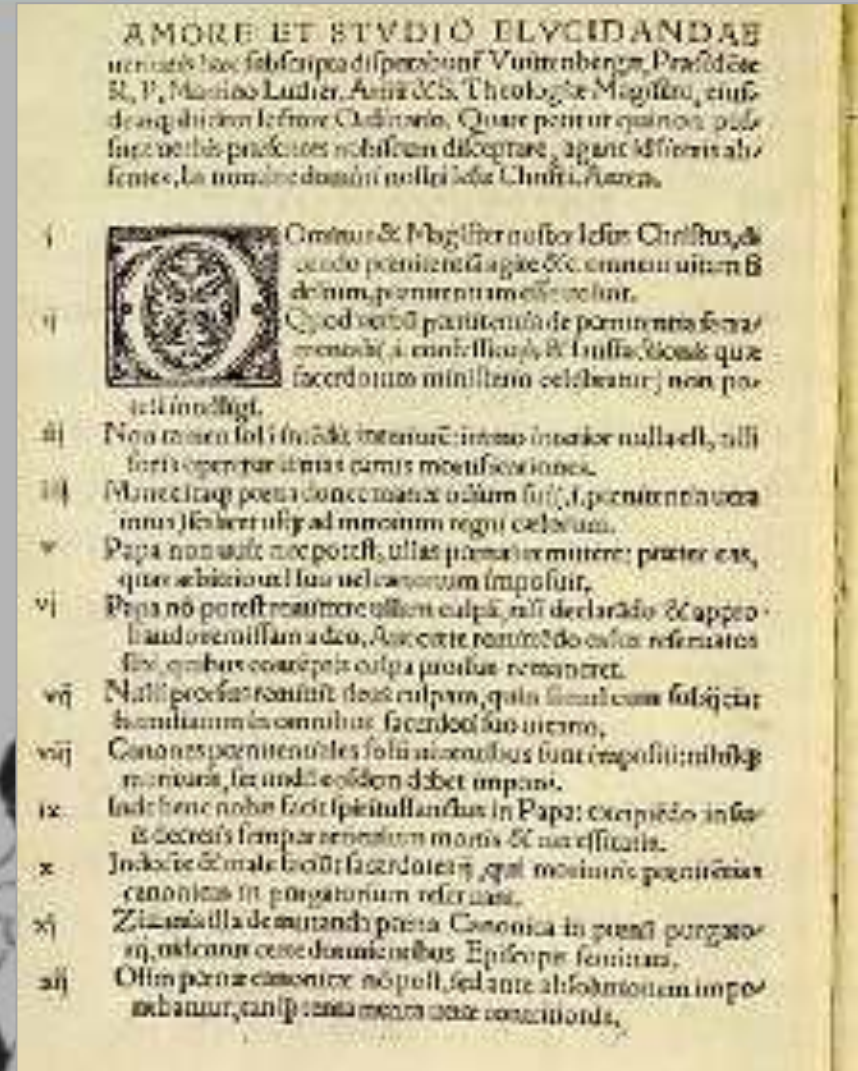 AMORE ET STVDIO ELVCIDANDAE
ueritatis hæc ſubſcripta diſputabunt Vuittenbergæ, Præſidēte
R. P. Martino Luther, Artiū & S. Theologiæ Magiſtro, eiuſ-
demqꝫ ibidem lectore Ordinario. Quare petit ut qui non poſ-
ſunt uerbis præſentes nobiſcum diſceptare, agant id literis ab-
ſentes. In nomine domini noſtri Ieſu Chriſti. Amen.
i DOminus & Magiſter noſter Ieſus Chriſtus, di
cendo pœnitentiā agite &c. omnem uitam fi
delium, pœnitentiam eſſe uoluit.
ij Quod uerbū pœnitentia de pœnitentia ſacra-
mentali (.i. confeſſionis & ſatiſfactionis quæ
ſacerdotum miniſterio celebratur) non po-
teſt intelligi.
iij Non tamen ſolā intēdit interiorē: immo interior nulla eſt, niſi
foris operetur uarias carnis mortificationes.
iiij Manet itaqꝫ pœna donec manet odium ſui (.i. pœnitentia uera
intus) ſcilicet uſqꝫ ad introitum regni cælorum.
v Papa non uult nec poteſt, ullas pœnas remittere: præter eas,
quas arbitrio uel ſuo uel canonum impoſuit.
vj Papa nō poteſt remittere ullam culpā, niſi declarādo & appro-
bando remiſſam a deo. Aut certe remittēdo caſus reſeruatos
ſibi, quibus contēptis culpa prorſus remaneret.
vij Nulli prorſus remittit deus culpam, quin ſimul eum ſubijciat
humiliatum in omnibus ſacerdoti ſuo uicario.
viij Canones pœnitentiales ſolū uiuentibus ſunt impoſiti: nihilqꝫ
morituris, ſecundū eoſdem debet imponi.
ix Inde bene nobis facit ſpiritusſanctus in Papa: excipiēdo in ſu-
is decretis ſemper articulum mortis & neceſſitatis.
x Indocte & male faciūt ſacerdotes ij, qui morituris pœnitētias
canonicas in purgatorium reſeruant.
xj Zizania illa de mutanda pœna Canonica in pœnā purgato-
rij, uidentur certe dormientibus Epiſcopis ſeminata.
xij Olim pœnæ canonicæ nō poſt, ſed ante abſolutionem impo-
nebantur, tanqꝫ tentamenta ueræ contritionis.